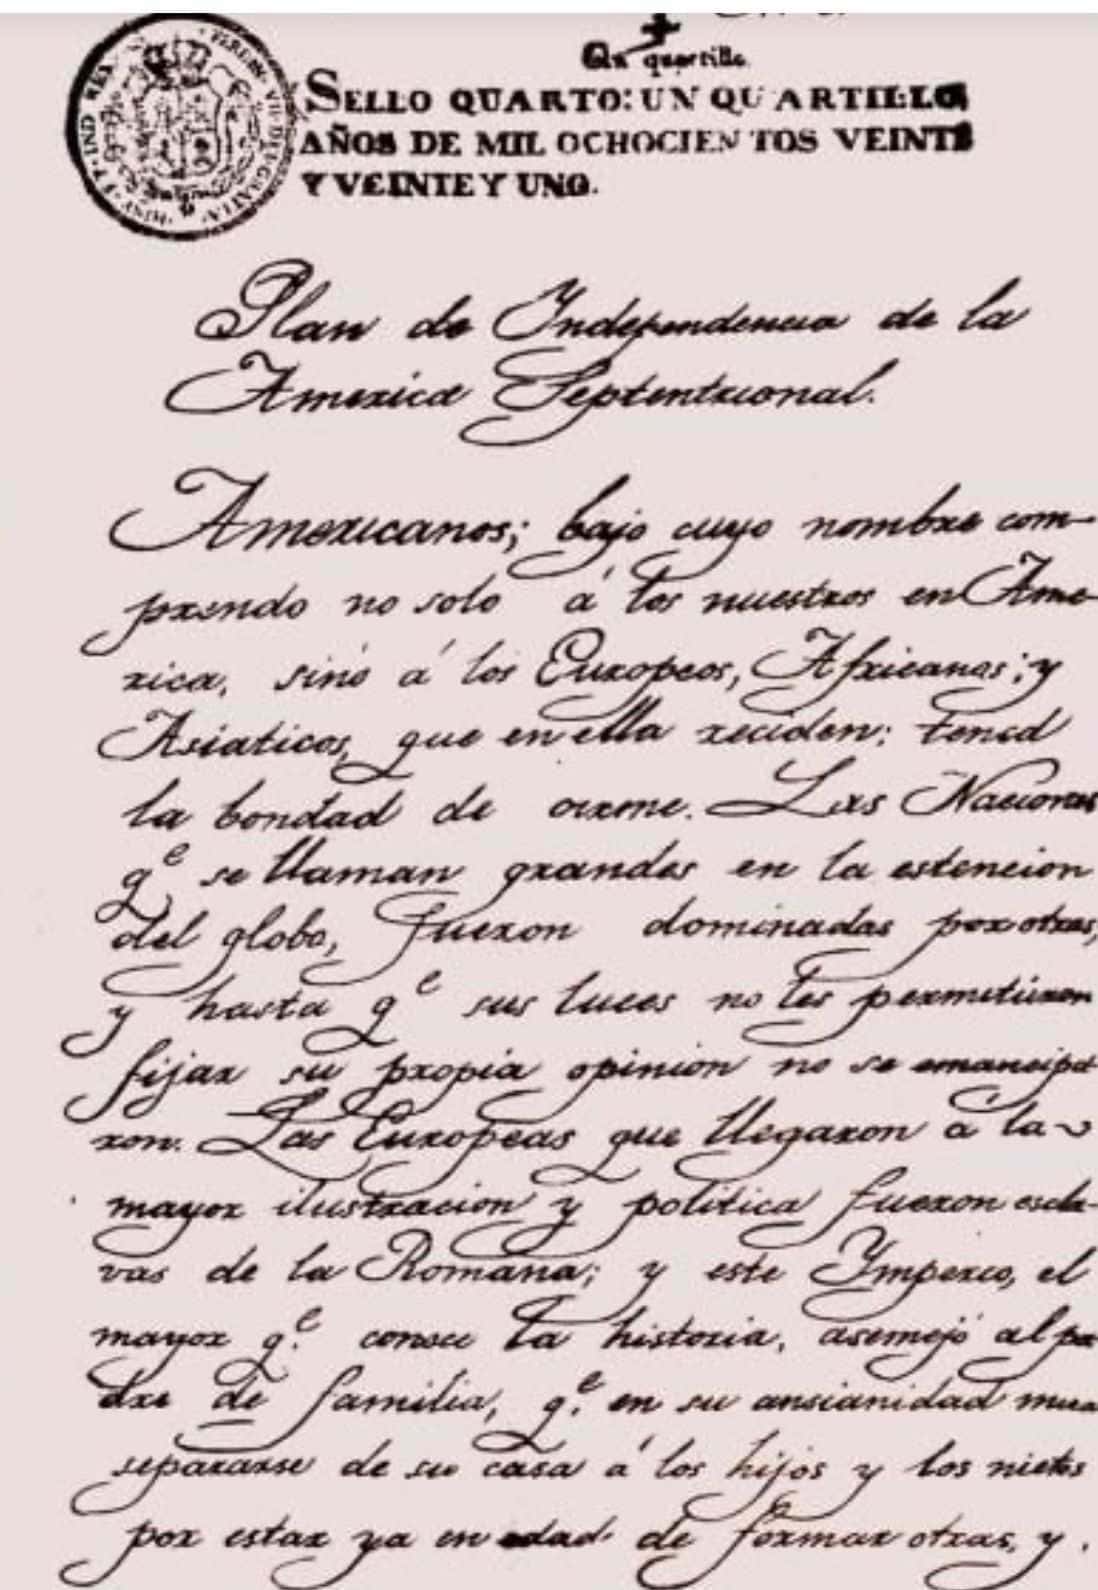 Un quartillo.
SELLO QUARTO: UN QUARTILLO
AÑOS DE MIL OCHOCIENTOS VEINTE
Y VEINTE Y UNO.
Plan de Independencia de la
America Septentrional.
Americanos; bajo cuyo nombre com-
prendo no solo á los nuestros en Ame-
rica, sinó á los Europeos, Africanos; y
Asiaticos, que en ella reciden: tened
la bondad de oirme. Las Naciones
qe se llaman grandes en la estencion
del globo, fueron dominadas por otras,
y hasta qe sus luces no les permitieron
fijar su propia opinion no se emancipa
ron. Las Europeas que llegaron á la
mayor ilustracion y politica fueron escla-
vas de la Romana; y este Imperio, el
mayor qe. conoce la historia, asemejó al pa
dre de familia, qe. en su ansianidad mira
separarse de su casa á los hijos y los nietos
por estar ya en edad de formar otras, y